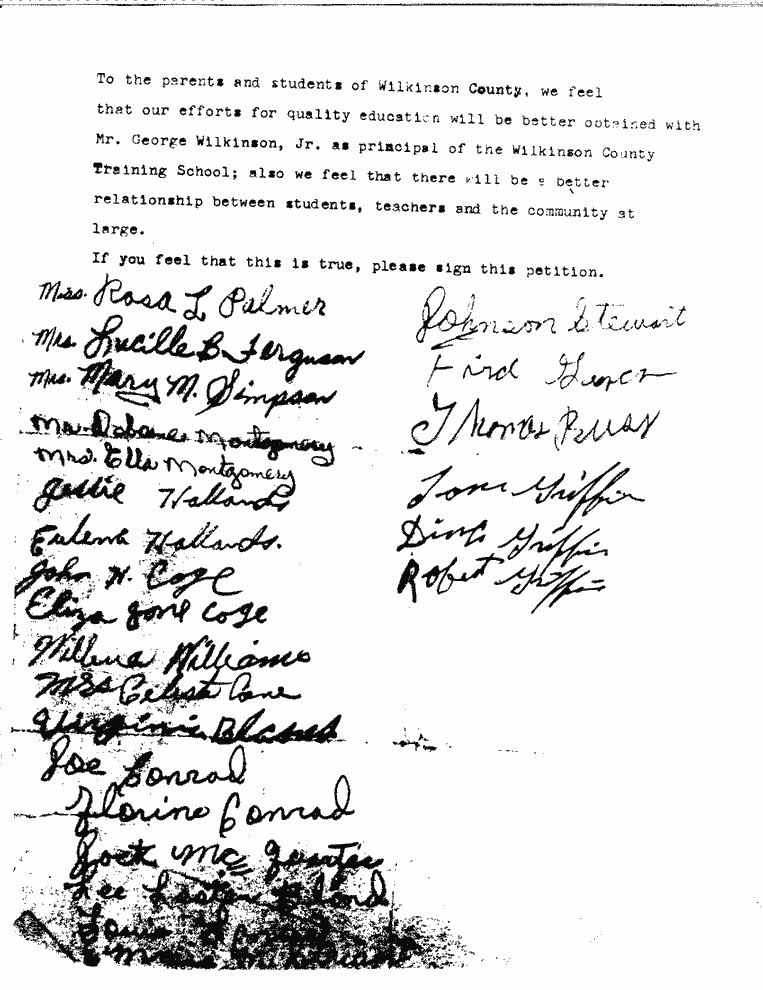 To the parents and students of Wilkinson County, we feel
that our efforts for quality education will be better obtained with
Mr. George Wilkinson, Jr. as principal of the Wilkinson County
Training School; also we feel that there will be a better
relationship between students, teachers and the community at
large.
If you feel that this is true, please sign this petition.
Mrs. Rosa L Palmer
Mrs. Lucille B. Ferguson
Mrs. Mary M. Simpson
Montgomery
Mrs. Ella Montgomery
Jessie Hallands
Eulena Hallands.
John H. Coge
Eliza Jone Coge
Willena Williams
Mrs Celesta Cane
Virginia
Joe Conrad
Florine Conrad
Mc
Lee Lester Bland
Johnson Stewart
Thomas
Griffin
Griffin
Robert Griffin